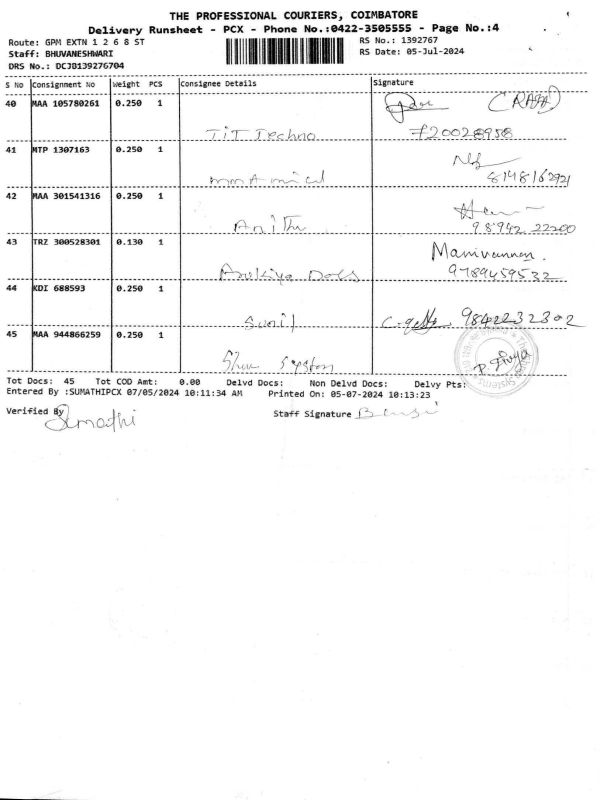 THE PROFESSIONAL COURIERS, COIMBATORE
Delivery Runsheet - PCX - Phone No.:0422-3505555 - Page No.:4
Route: GPM EXTN 1 2 6 8 ST RS No.: 1392767
Staff: BHUVANESHWARI RS Date: 05-Jul-2024
DRS No.: DCJD139276704
S No Consignment No Weight PCS Consignee Details Signature
40 MAA 105780261 0.250 1
TiT Techno
41 MTP 1307163 0.250 1
8148162921
42 MAA 301541316 0.250 1
Anithu 98942 22200
43 TRZ 300528301 0.130 1 Manivannan.
Docs 9789459532
44 KDI 688593 0.250 1
Sunil 9842232302
45 MAA 944866259 0.250 1
P. Divya
Tot Docs: 45 Tot COD Amt: 0.00 Delvd Docs: Non Delvd Docs: Delvy Pts:
Entered By :SUMATHIPCX 07/05/2024 10:11:34 AM Printed On: 05-07-2024 10:13:23
Verified By Sumathi Staff Signature